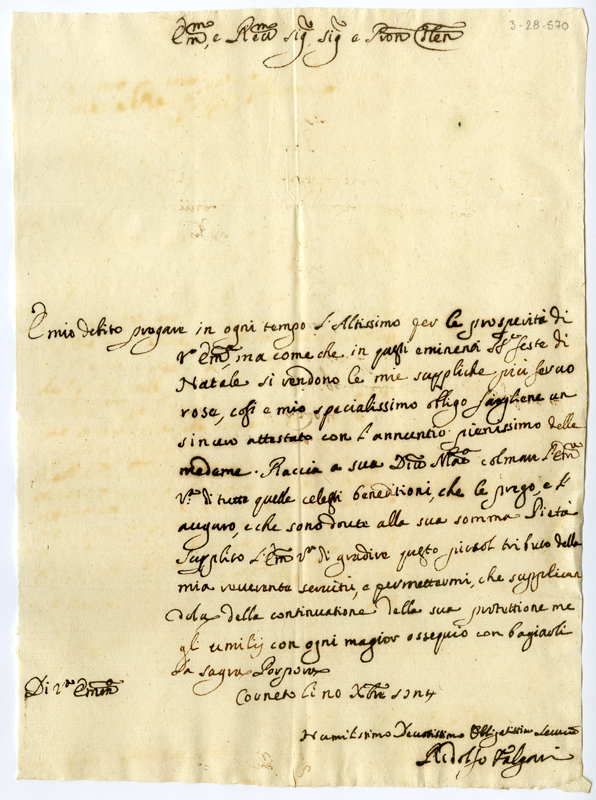 3-28-570
Em.mo e Re.mo Sig.r Sig.r e Pron Colen.
È mio debito pregare in ogni tempo l'Altissimo per le prosperità di
V.ra Em.a, ma come che in questi eminenti SS.e feste di
Natale si rendono le mie suppliche più fervo
rose, così e mio specialissimo obligo fargliene un
sincero attestato con l'annuntio pienissimo delle
medeme. Piaccia a sua Divi. Mtà colmare l'Em.a
V.ra di tutte quelle celesti beneditioni, che le prego, e l'
auguro, e che sono dovute alla sua somma Pietà
Supplico l'Em.a V.ra di gradire questo piccol tributo della
mia reverente servitù, e permettermi, che supplican
dola della continuatione della sua protettione me
gli umilij con ogni magior ossequio con bagiarli
la sagra Porpora
Di V.ra Em.a
Corneto li
Humilissimo Devotissimo Obligatissimo
Ridolfo